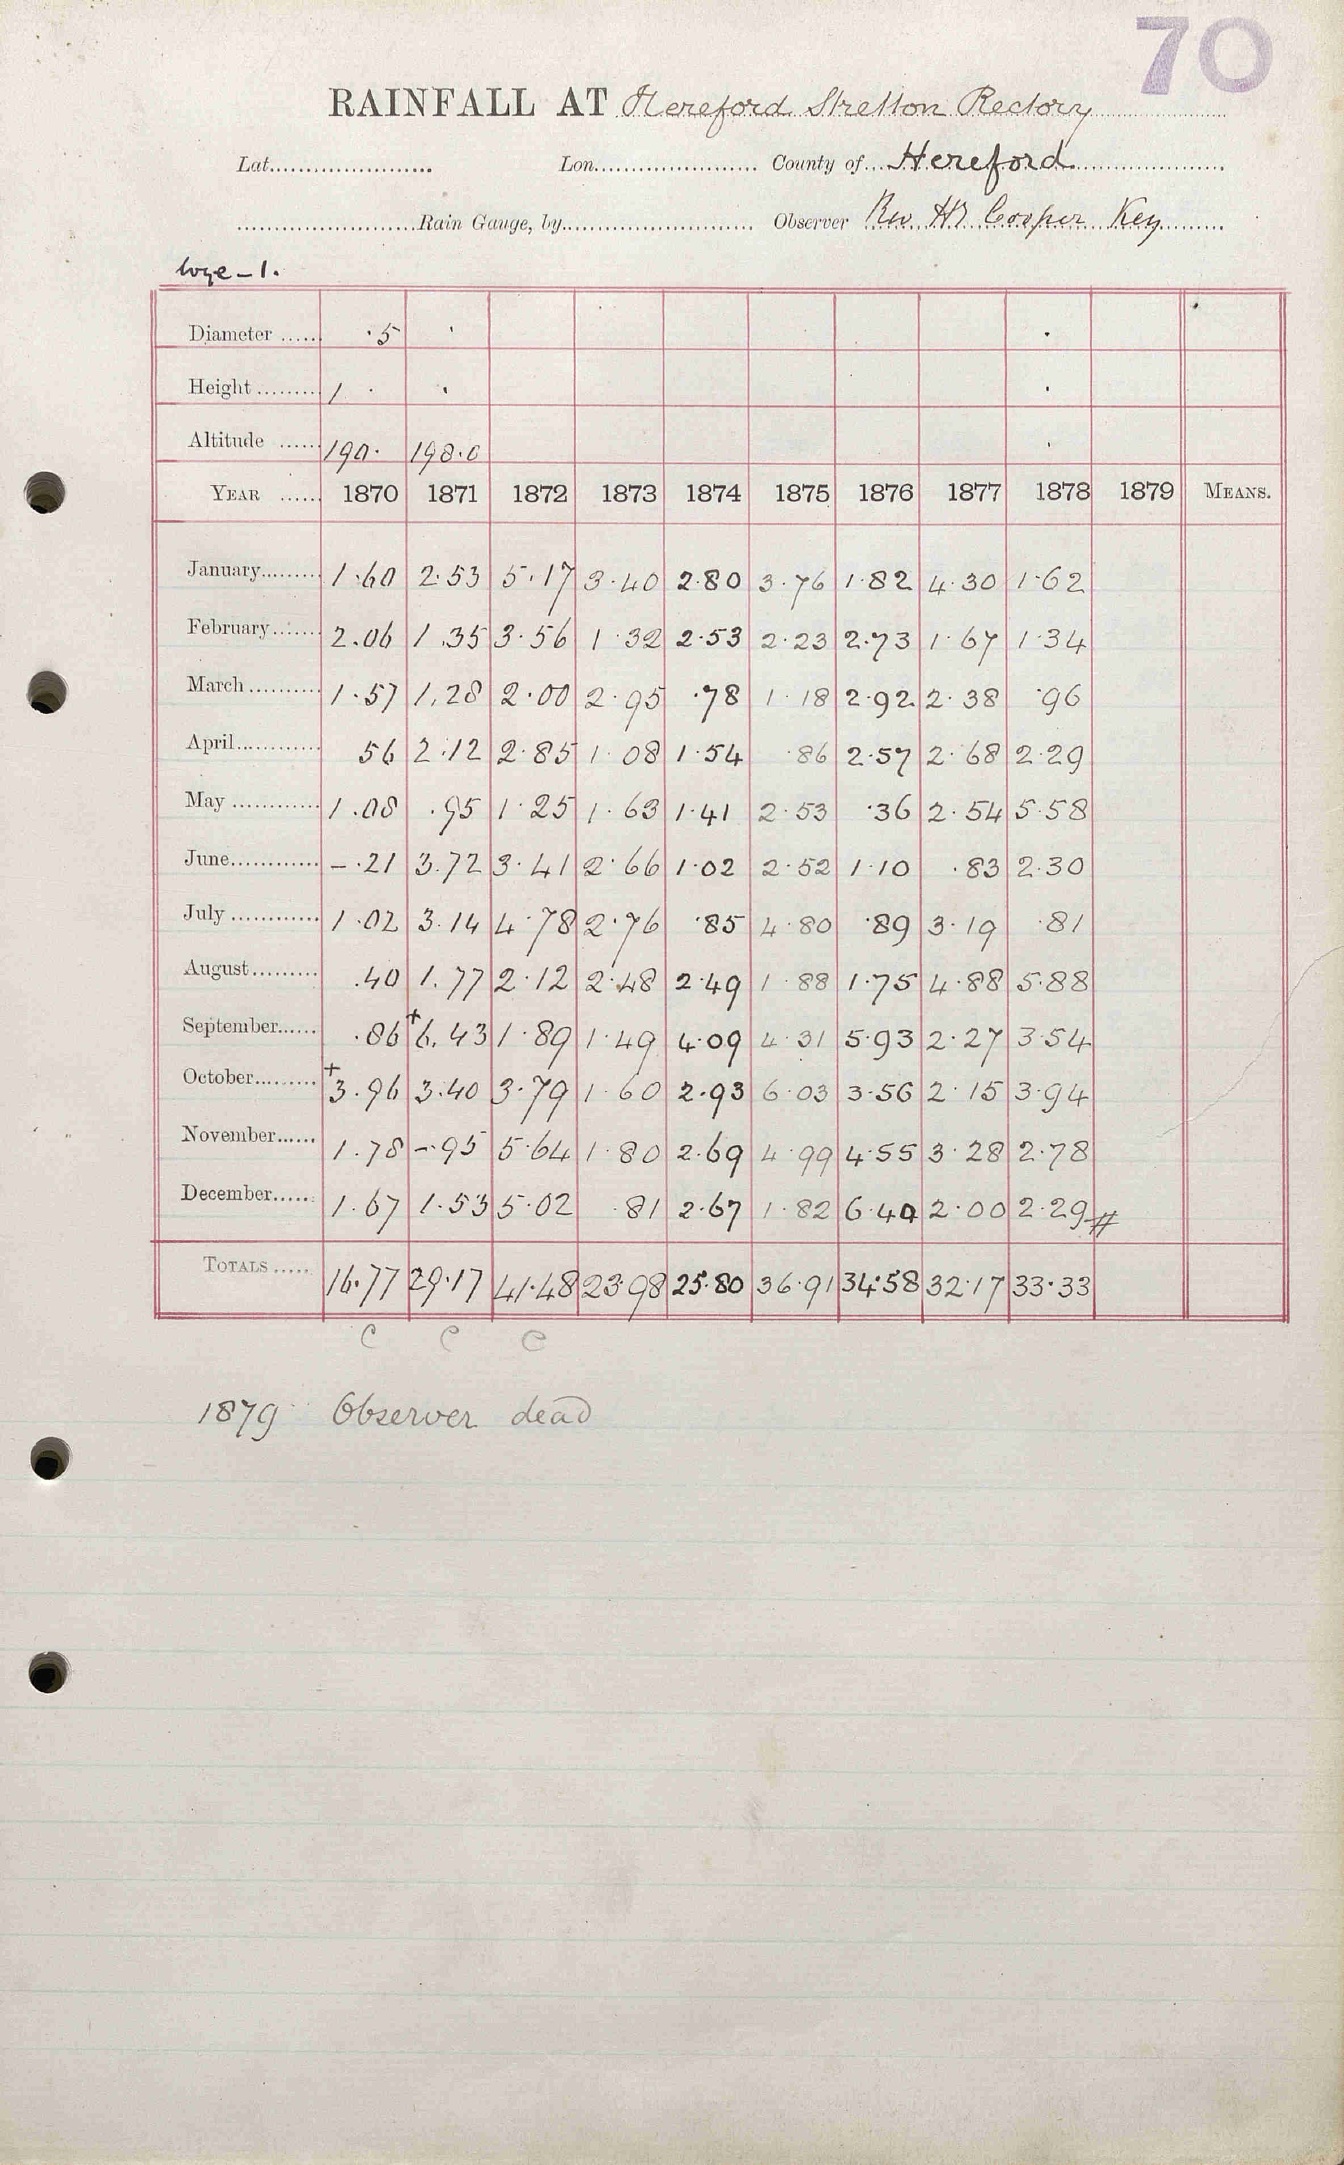 70
RAINFALL AT Hereford Stretton Rectory
Lat. Lon. County of Hereford
Rain Gauge, by Observer Rev. Hy Cooper Key
Wye - 1.
Diameter ·5 · ·
Height 1 · · ·
Altitude 190· 198·0 ·
YEAR 1870 1871 1872 1873 1874 1875 1876 1877 1878 1879 MEANS.
January 1·60 2·53 5·17 3·40 2·80 3·76 1·82 4·30 1·62
February 2·06 1·35 3·56 1·32 2·53 2·23 2·73 1·67 1·34
March 1·57 1·28 2·00 2·95 ·78 1·18 2·92 2·38 ·96
April 56 2·12 2·85 1·08 1·54 ·86 2·57 2·68 2·29
May 1·08 ·95 1·25 1·63 1·41 2·53 ·36 2·54 5·58
June -·21 3·72 3·41 2·66 1·02 2·52 1·10 ·83 2·30
July 1·02 3·14 4·78 2·76 ·85 4·80 ·89 3·19 ·81
August ·40 1·77 2·12 2·48 2·49 1·88 1·75 4·88 5·88
September ·86 +6·43 1·89 1·49 4·09 4·31 5·93 2·27 3·54
October +3·96 3·40 3·79 1·60 2·93 6·03 3·56 2·15 3·94
November 1·78 -·95 5·64 1·80 2·69 4·99 4·55 3·28 2·78
December 1·67 1·53 5·02 ·81 2·67 1·82 6·40 2·00 2·29#
TOTALS 16·77 29·17 41·48 23·98 25·80 36·91 34·58 32·17 33·33
C C C
1879 Observer dead